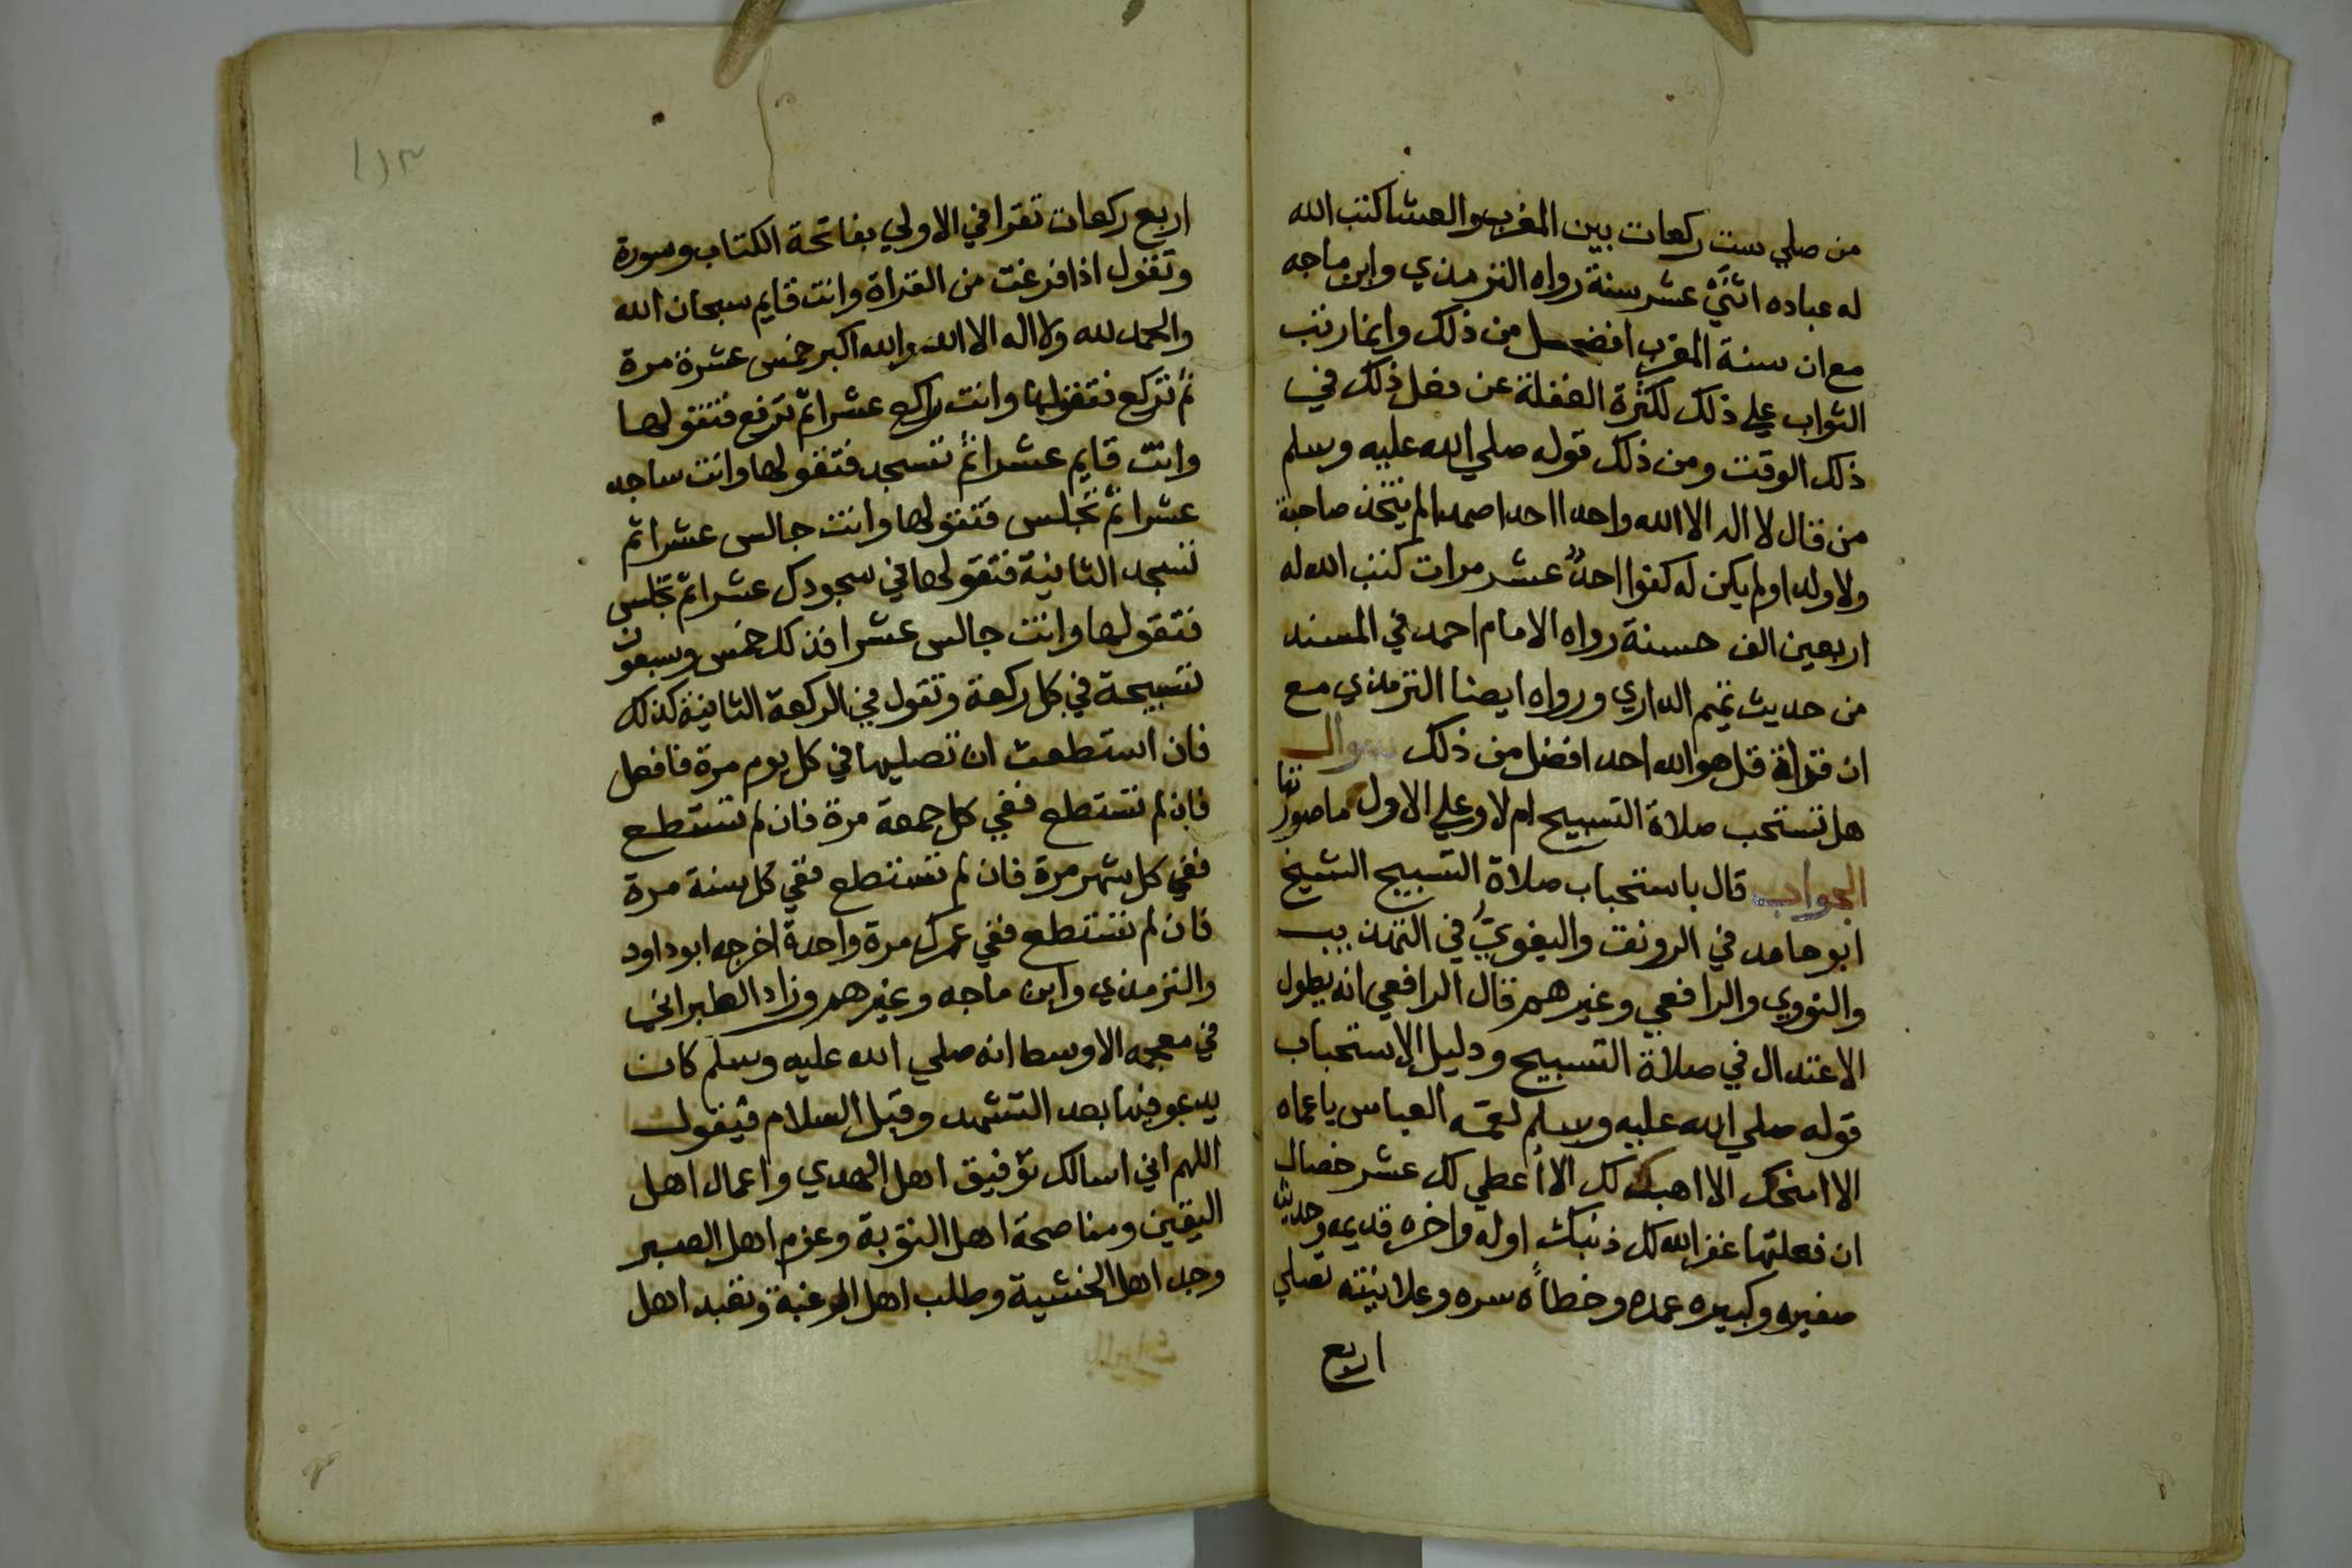 من صلي ست ركعات بين المغرب والعشا كتب الله
له عباده اثنَيْ عشر سنة رواه الترمذي وابن ماجه
مع ان سنة المغرب افضل من ذلك وانما رتب
الثواب علي ذلك لكثرة الغفلة عن فعل ذلك في
ذلك الوقت ومن ذلك قوله صلي الله عليه وسلم
من قال لا اله الا الله واحدا احدا صمدا لم يتخذ صاحبة
ولا ولدا ولم يكن له كفوا احدٌ عشر مرات كتب الله له
اربعين الف حسنة رواه الامام احمد في المسند
من حديث تميم الداري ورواه ايضا الترمذي مع
ان قراة قل هو الله احد افضل من ذلك سوال
هل تستحب صلاة التسبيح ام لا وعلي الاول ما صورتها
الجواب قال باستحباب صلاة التسبيح الشيخ
ابو حامد في الرونق والبغويُّ في التهذيب
والنووي والرافعي وغيرهم قال الرافعي انه يطول
الاعتدال في صلاة التسبيح ودليل الاستحباب
قوله صلي الله عليه وسلم لعمه العباس يا عماه
الا امنحك الا اهبك لك الا أعطي لك عشر خصال
ان فعلتها غفر الله لك ذنبك اوله واخره قديمه وحديثه
صغيره وكبيره عمده وخطاه سره وعلانيته تصلي
اربع
١١٣
اربع ركعات تقرا في الاولي بفاتحة الكتاب وسورة
وتقول اذا فرغت من القراة وانت قايم سبحان الله
والحمد لله ولا اله الا الله والله اكبر خمس عشرة مرة
ثم تركع فتقولها وانت راكع عشرا ثم ترفع فتقولها
وانت قايم عشرا ثم تسجد فتقولها وانت ساجد
عشرا ثم تجلس فتقولها وانت جالس عشرا ثم
تسجد الثانية فتقولها في سجودك عشرا ثم تجلس
فتقولها وانت جالس عشرا فذلك خمس وسبعون
تسبيحة في كل ركعة وتقول في الركعة الثانية كذلك
فان استطعت ان تصليها في كل يوم مرة فافعل
فان لم تستطع ففي كل جمعة مرة فان لم تستطع
ففي كل شهر مرة فان لم تستطع ففي كل سنة مرة
فان لم تستطع ففي عمرك مرة واحدة اخرجه ابو داود
والترمذي وابن ماجه وغيرهم وزاد الطبراني
في معجمه الاوسط انه صلي الله عليه وسلم كان
يدعو فيها بعد التشهد وقبل السلام فيقول
اللهم اني اسالك توفيق اهل الهدي واعمال اهل
اليقين ومناصحة اهل التوبة وعزم اهل الصبر
وجد اهل الخشية وطلب اهل الرغبة وتعبد اهل